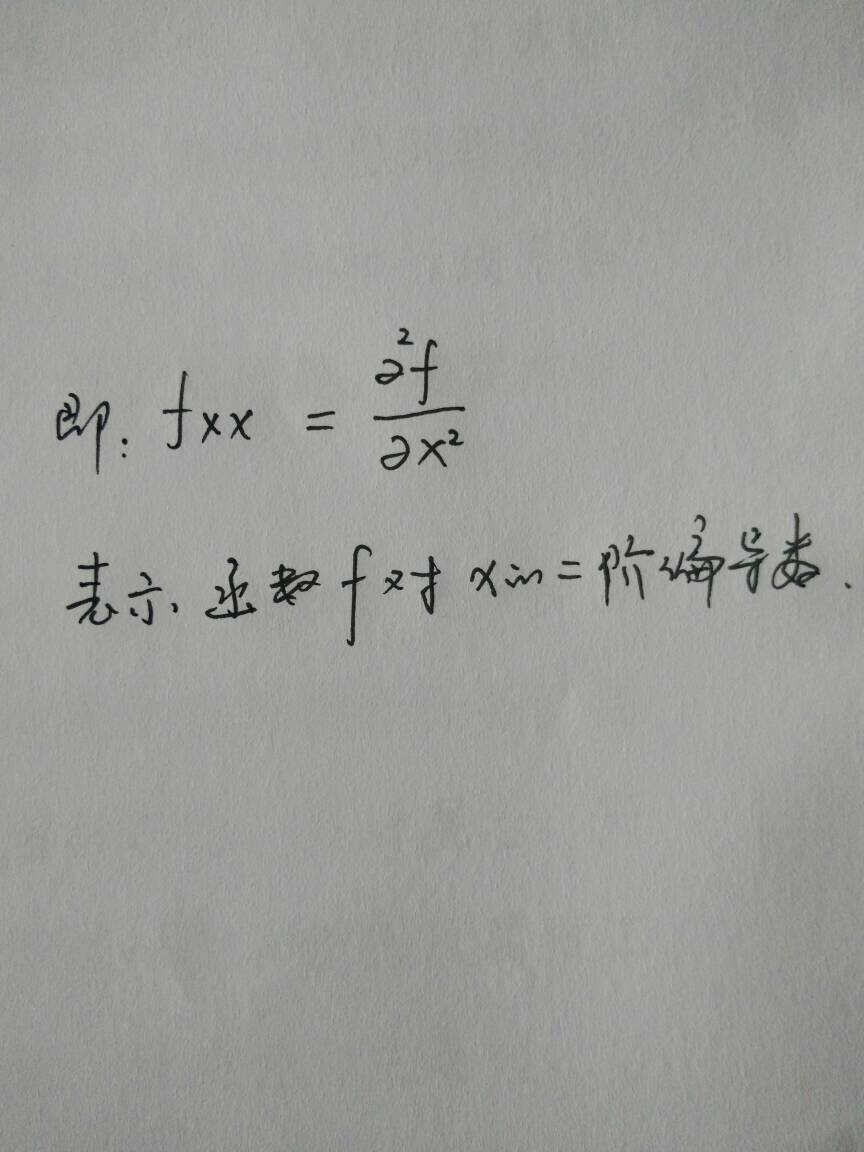 即: fxx = ∂²f/∂x²
表示、函数f对x的二阶偏导数.